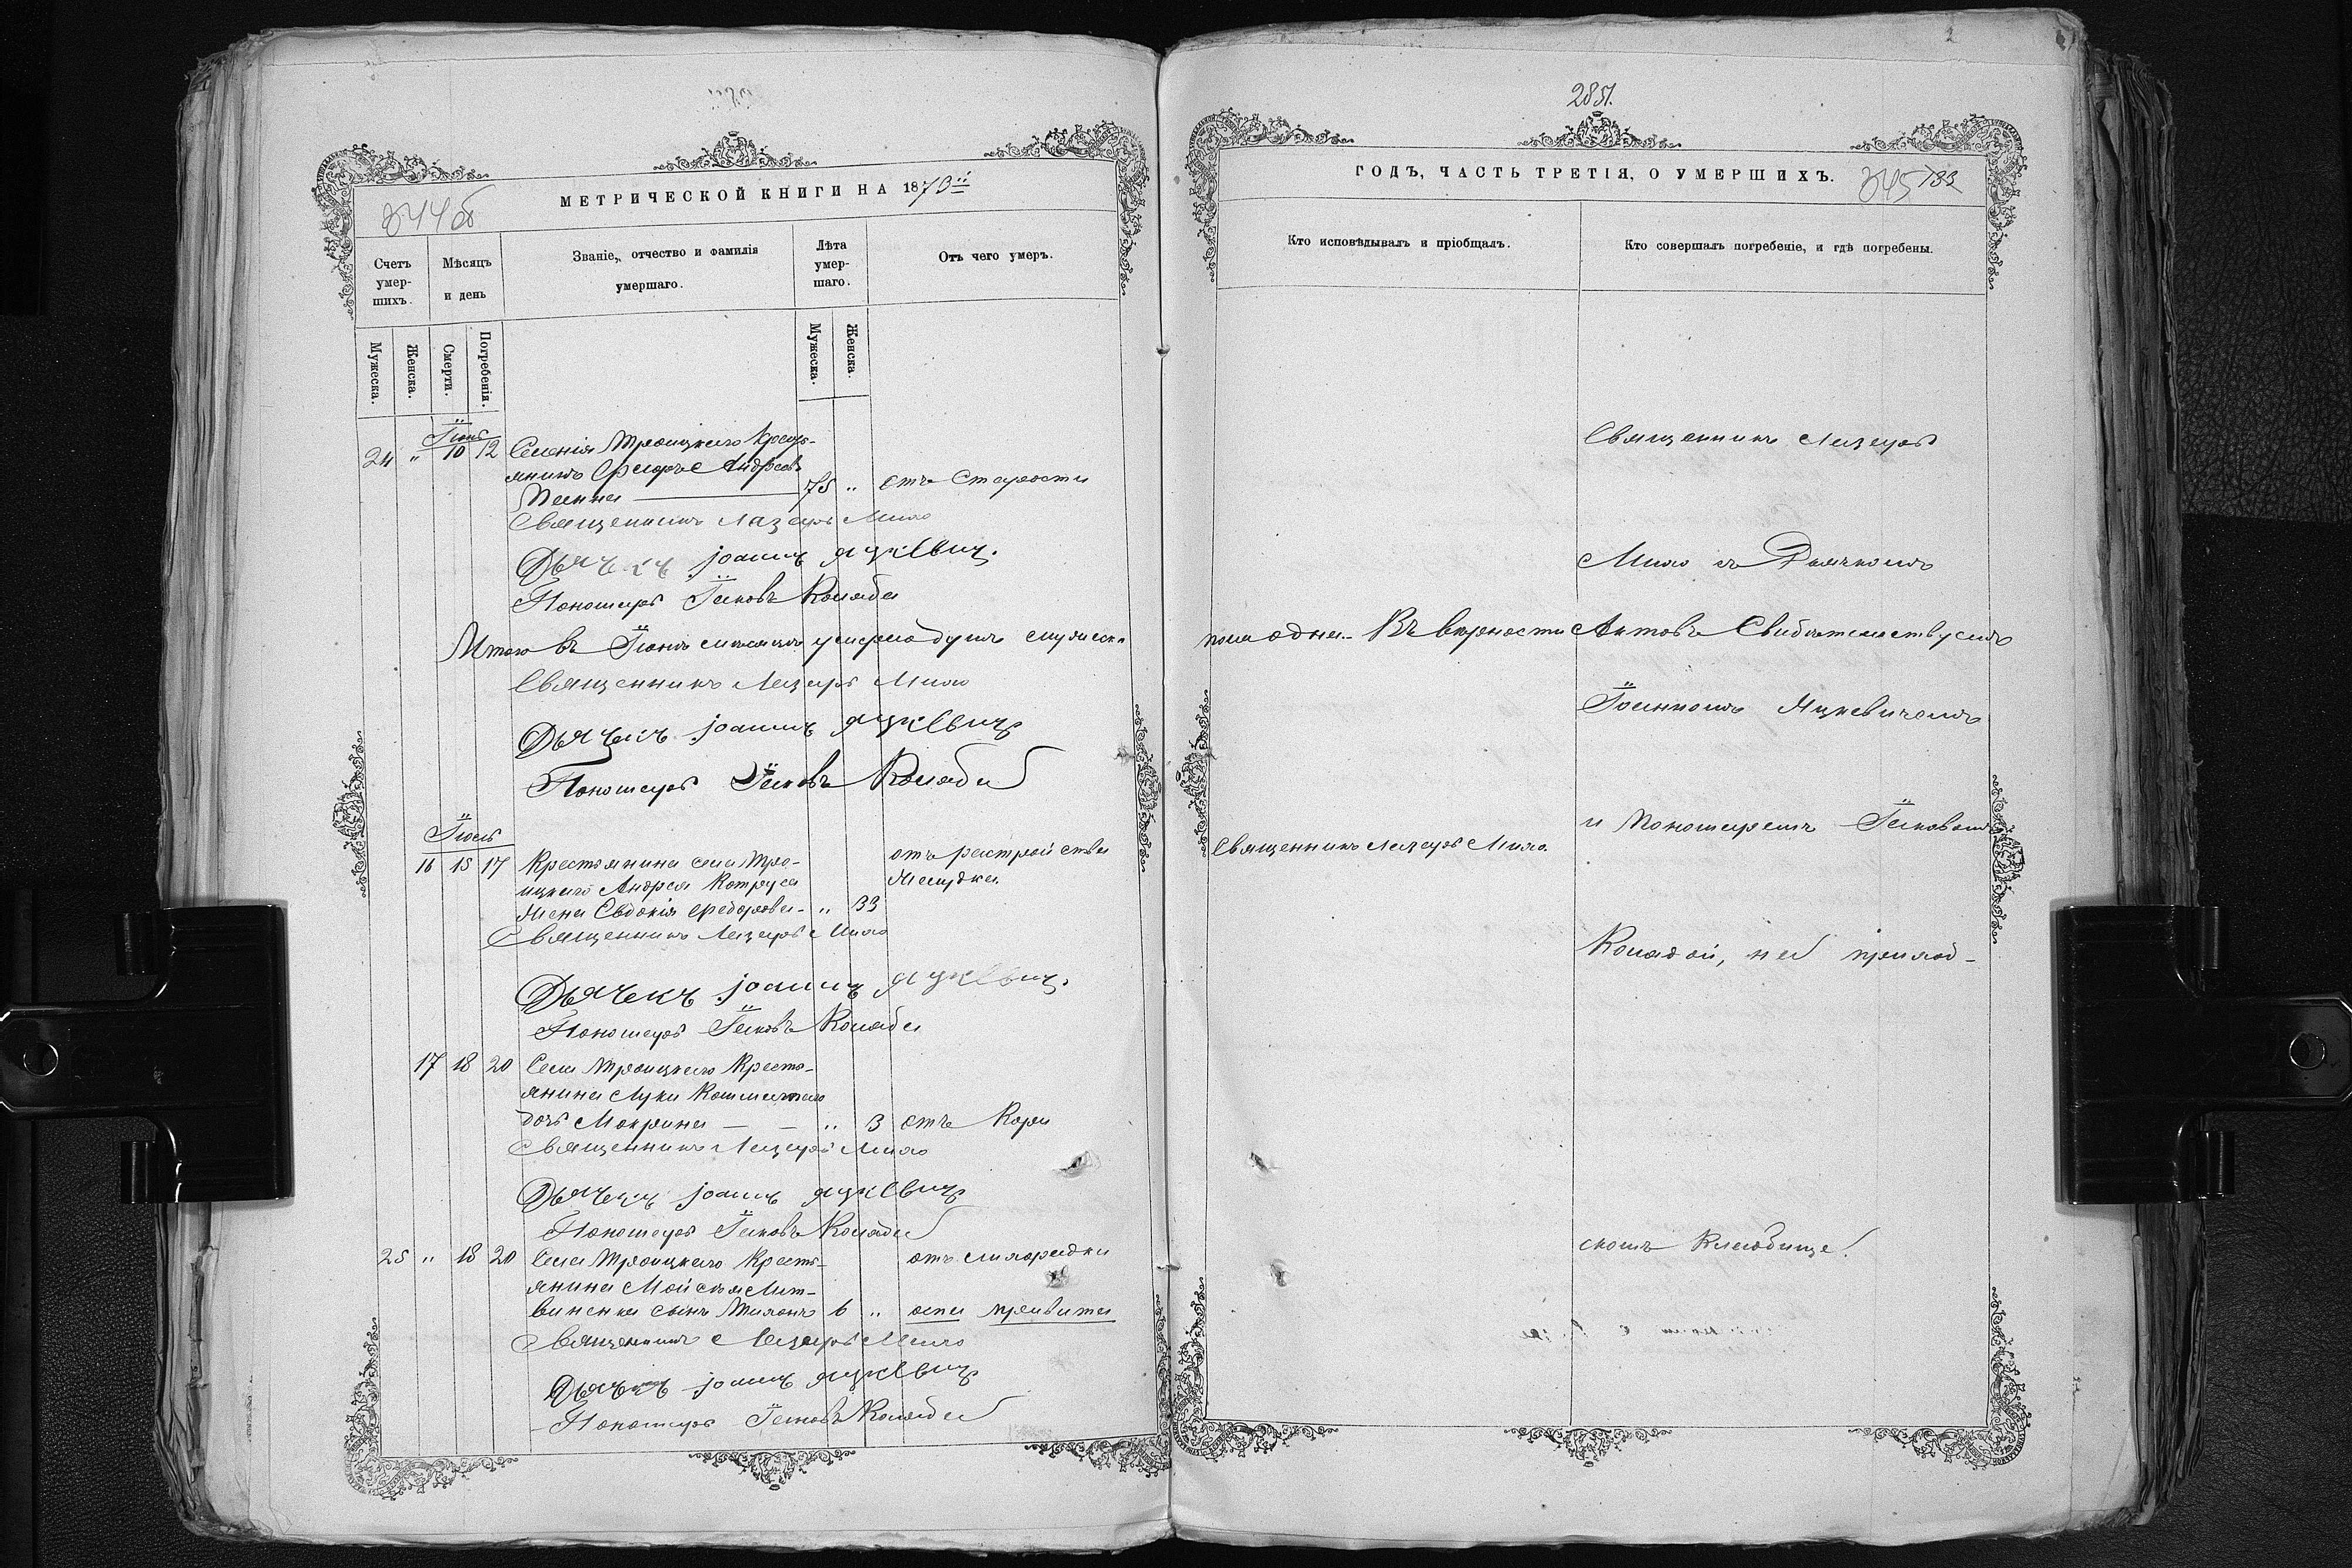 МЕТРИЧЕСКОЙ КНИГИ НА 1870й
344об
Счетъ умер-шихъ.
Мѣсяцъ и день
Званіе, отчество и фамилія умершаго.
Лѣта умер-шаго.
Отъ чего умеръ.
Мужеска.
Женска.
Смерти.
Погребенія.
Мужеска.
Женска.
Іюнь
24 " 10 12 Селенія Троицкаго Кресть-
янинъ Андреевъ
75 " отъ Старости
Священникъ Лазарь Мило
Дьячекъ Іоаннъ Яцкевич.
Пономарь Іаковъ Коляда
Итого въ Іюнѣ мѣсяцѣ умерло душъ мужеска
Священникъ Лазарь Мило
Дьячекъ Іоаннъ Яцкевич
Пономарь Іаковъ Коляда
Іюль
16 15 17 Крестьянина села Тро-
ицкаго Андрея Котруса
жена Евдокія Федорова - " 33
отъ растройства
Желудка.
Священникъ Лазарь Мило
Дьячекъ Іоаннъ Яцкевич.
Пономарь Іаковъ Коляда
17 18 20 Села Троицкаго Кресть-
янина Луки
дочь Мокрина — — " 3 отъ Кори
Священникъ Лазарь Мило
Дьячекъ Іоаннъ Яцкевич
Пономарь Іаковъ Коляда
25 " 18 20 Села Троицкаго Кресть-
янина Мойсея Лит-
виненка сынъ Тихонъ 6 "
отъ лихорадки
оспа привита
Священникъ Лазарь Мило
Дьячекъ Іоаннъ Яцкевич
Пономарь Іаковъ Коляда
2851.
ГОДЪ, ЧАСТЬ ТРЕТІЯ, О УМЕРШИХЪ.
345 183
Кто исповѣдывалъ и пріобщалъ.
Кто совершалъ погребеніе, и гдѣ погребены.
Священникъ Лазарь
Мило съ Дьячкомъ
пола одна. Въ вѣрности Актовъ Свидѣтельствуемъ
Іоанномъ Яцкевичомъ
и Пономаремъ Іаковомъ
Священникъ Лазарь Мило.
Колядой, на приход-
скомъ Кладбище.